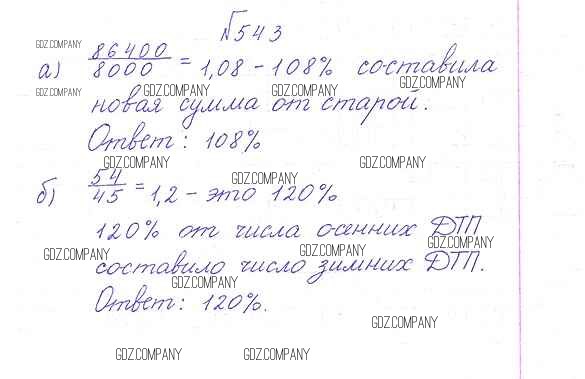 №543
GDZ.COMPANY
а) 86400/8000 = 1,08 – 108% составила
GDZ.COMPANY
GDZ.COMPANY GDZ.COMPANY GDZ.COMPANY
новая сумма от старой.
Ответ: 108%
GDZ.COMPANY GDZ.COMPANY
б) 54/45 = 1,2 – это 120%
GDZ.COMPANY
120% от числа осенних ДТП
GDZ.COMPANY GDZ.COMPANY GDZ.COMPANY
составило число зимних ДТП.
GDZ.COMPANY
Ответ: 120%.
GDZ.COMPANY
GDZ.COMPANY GDZ.COMPANY